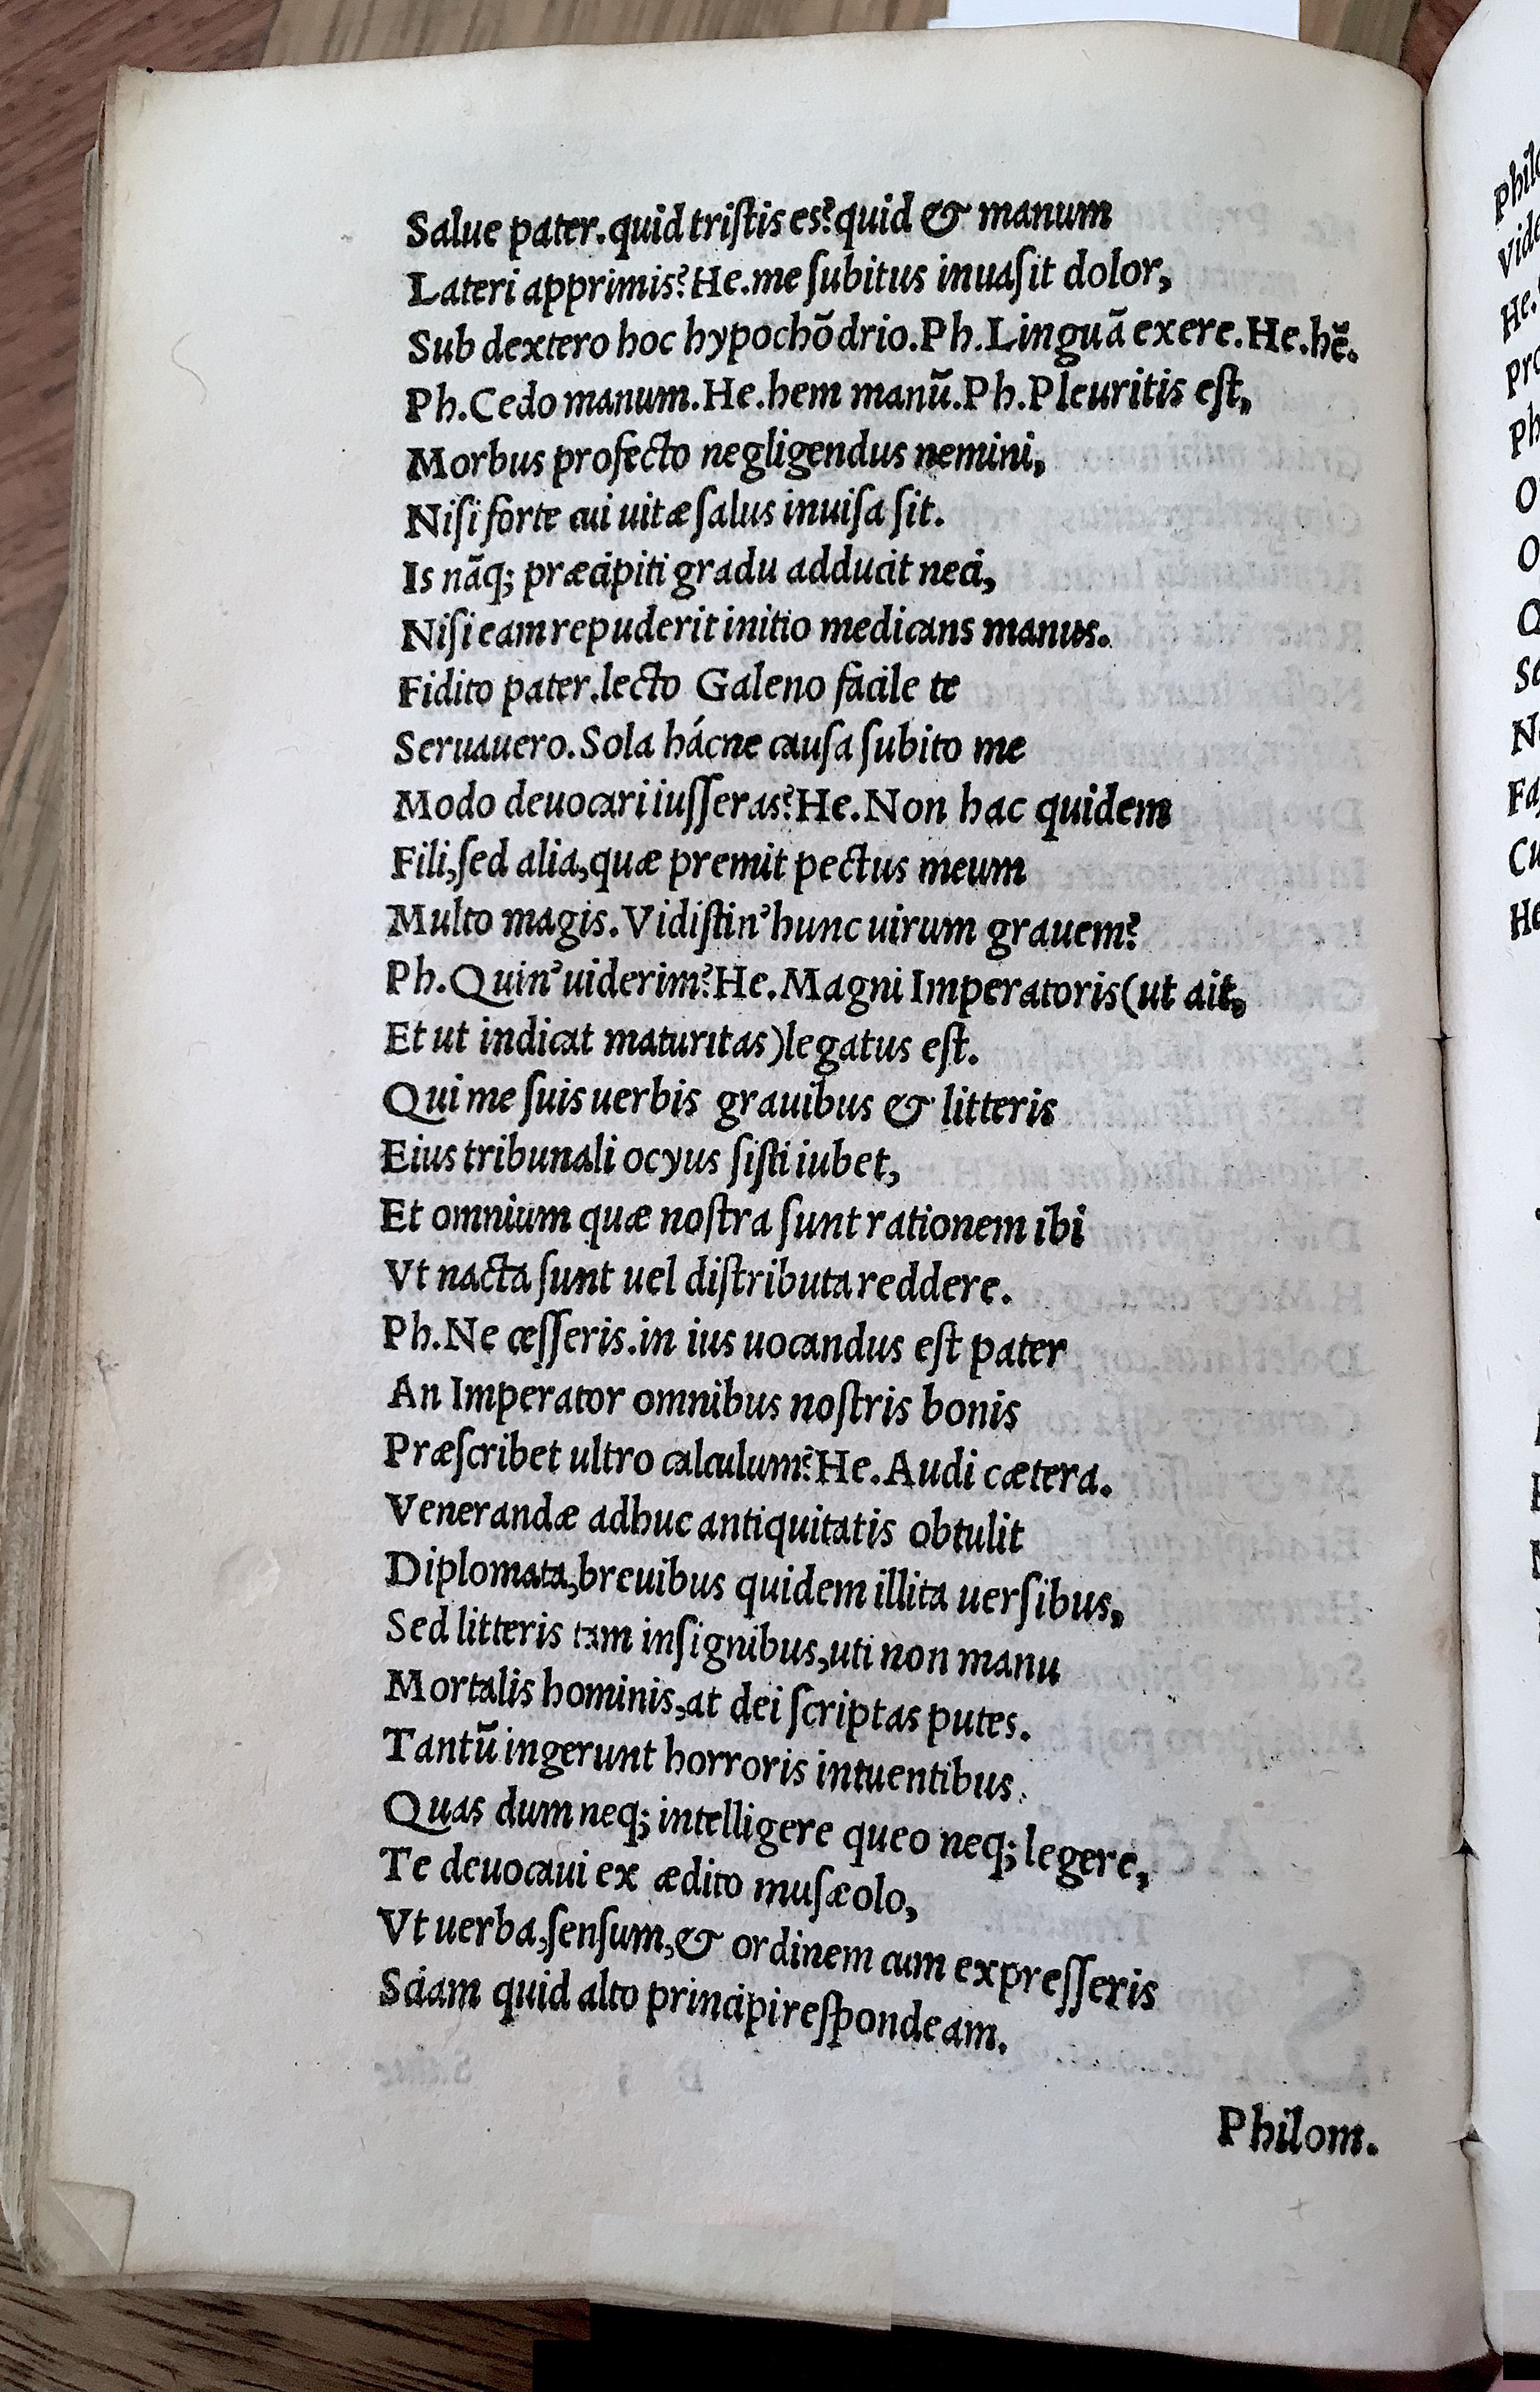 Salue pater.quid tristis es?quid & manum
Lateri apprimis?He.me subitus inuasit dolor,
Sub dextero hoc hypochōdrio.Ph.Linguā exere.He.hē.
Ph.Cedo manum.He.hem manū.Ph.Pleuritis est,
Morbus profecto negligendus nemini,
Nisi forte cui uitæ salus inuisa sit.
Is nāq; præcipiti gradu adducit neci,
Nisi eam repuderit initio medicans manus.
Fidito pater.lecto Galeno facile te
Seruauero.Sola hácne causa subito me
Modo deuocari iusseras?He.Non hac quidem
Fili,sed alia,quæ premit pectus meum
Multo magis.Vidistin'hunc uirum grauem?
Ph.Quin'uiderim?He.Magni Imperatoris(ut ait,
Et ut indicat maturitas)legatus est.
Qui me suis uerbis grauibus & litteris
Eius tribunali ocyus sisti iubet,
Et omnium quæ nostra sunt rationem ibi
Vt nacta sunt uel distributa reddere.
Ph.Ne cesseris.in ius uocandus est pater
An Imperator omnibus nostris bonis
Præscribet ultro calculum?He.Audi cætera.
Venerandæ adhuc antiquitatis obtulit
Diplomata,breuibus quidem illita uersibus,
Sed litteris tam insignibus,uti non manu
Mortalis hominis,at dei scriptas putes.
Tantū ingerunt horroris intuentibus.
Quas dum neq; intelligere queo neq; legere,
Te deuocaui ex ædito musæolo,
Vt uerba,sensum,& ordinem cum expresseris
Sciam quid alto principi respondeam.
Philom.